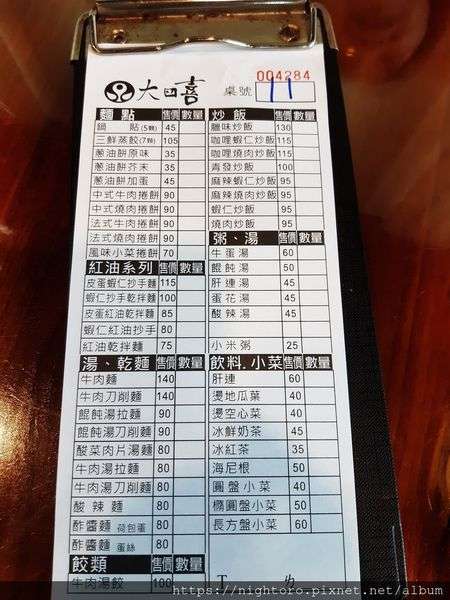 大日喜
004284
桌號 11
麵點 售價 數量
鍋貼(5顆) 45
三鮮蒸餃(7顆) 105
蔥油餅原味 35
蔥油餅芥末 35
蔥油餅加蛋 45
中式牛肉捲餅 90
中式燒肉捲餅 90
法式牛肉捲餅 90
法式燒肉捲餅 90
風味小菜捲餅 70
紅油系列 售價 數量
皮蛋蝦仁抄手麵 115
蝦仁抄手乾拌麵 100
皮蛋紅油乾拌麵 85
蝦仁紅油抄手 80
紅油乾拌麵 75
湯、乾麵 售價 數量
牛肉麵 140
牛肉刀削麵 140
餛飩湯拉麵 90
餛飩湯刀削麵 90
酸菜肉片湯麵 80
牛肉湯拉麵 80
牛肉湯刀削麵 80
酸辣麵 80
酢醬麵 荷包蛋 80
酢醬麵 蛋絲 80
餃類 售價 數量
牛肉湯餃 100
炒飯 售價 數量
臘味炒飯 130
咖哩蝦仁炒飯 115
咖哩燒肉炒飯 115
青發炒飯 100
麻辣蝦仁炒飯 95
麻辣燒肉炒飯 95
蝦仁炒飯 95
燒肉炒飯 95
粥、湯 售價 數量
牛蛋湯 60
餛飩湯 50
肝連湯 45
蛋花湯 45
酸辣湯 45
小米粥 25
飲料.小菜 售價 數量
肝連 60
燙地瓜葉 40
燙空心菜 40
冰鮮奶茶 45
冰紅茶 35
海尼根 50
圓盤小菜 40
橢圓盤小菜 50
長方盤小菜 60
https://nightoro.pixnet.net/album